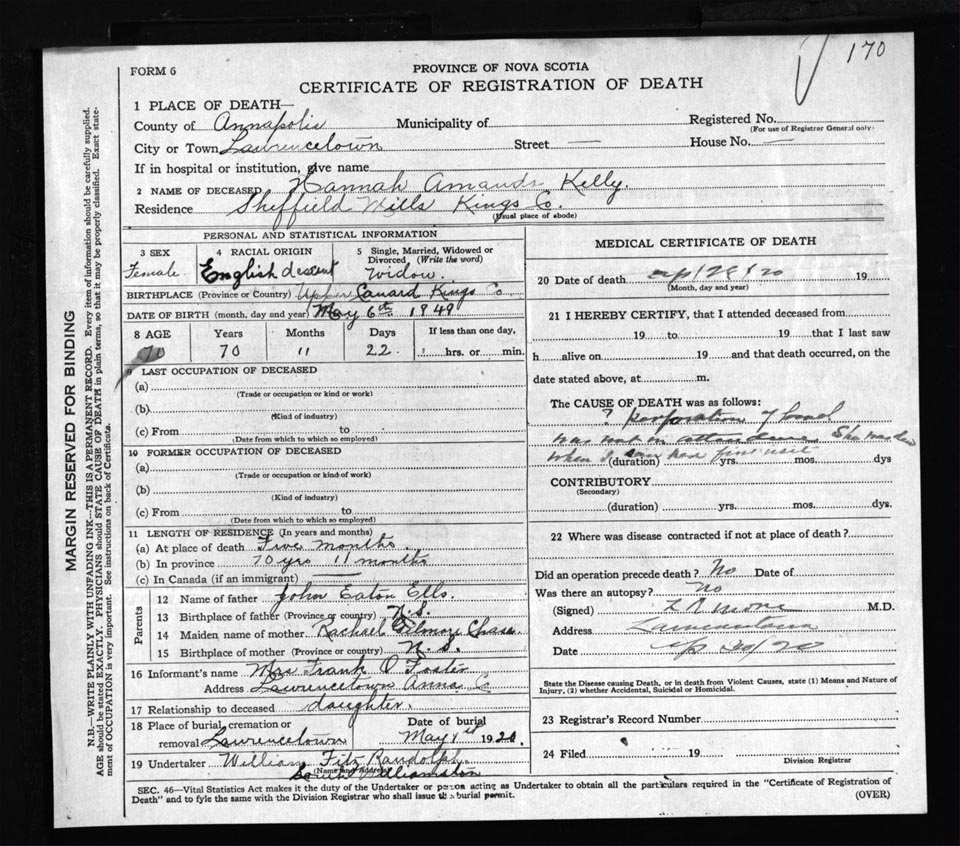 170
FORM 6
PROVINCE OF NOVA SCOTIA
CERTIFICATE OF REGISTRATION OF DEATH
1 PLACE OF DEATH—
County of Annapolis Municipality of
Registered No.
(For use of Registrar General only)
City or Town Lawrencetown Street — House No. —
If in hospital or institution, give name
2 NAME OF DECEASED Hannah Amanda Kelly.
Residence Sheffield Mills Kings Co.
(Usual place of abode)
PERSONAL AND STATISTICAL INFORMATION
3 SEX
Female
4 RACIAL ORIGIN
English descent
5 Single, Married, Widowed or
Divorced (Write the word)
Widow.
BIRTHPLACE (Province or Country) Upper Canard Kings Co
DATE OF BIRTH (month, day and year) May 6th 1849
8 AGE
70
Years
70
Months
11
Days
22.
If less than one day,
hrs. or min.
9 LAST OCCUPATION OF DECEASED
(a)
(Trade or occupation or kind or work)
(b)
(Kind of industry)
(c) From to
(Date from which to which so employed)
10 FORMER OCCUPATION OF DECEASED
(a)
(Trade or occupation or kind of work)
(b)
(Kind of industry)
(c) From to
(Date from which to which so employed)
11 LENGTH OF RESIDENCE (In years and months)
(a) At place of death Five months
(b) In province 70 yrs 11 months
(c) In Canada (if an immigrant) —
Parents
12 Name of father John Eaton Ells.
13 Birthplace of father (Province or country) N.S.
14 Maiden name of mother Rachael Gilmore Chase
15 Birthplace of mother (Province or country) N.S.
16 Informant's name Mrs Frank O Foster
Address Lawrencetown Anna Co
17 Relationship to deceased daughter.
18 Place of burial, cremation or
removal Lawrencetown
Date of burial
May 1st 1920.
19 Undertaker William Fitz Randolph
(Name and Address)
South Williamston
MEDICAL CERTIFICATE OF DEATH
20 Date of death 19
(Month, day and year)
21 I HEREBY CERTIFY, that I attended deceased from
19 to 19 that I last saw
h alive on 19 and that death occurred, on the
date stated above, at m.
The CAUSE OF DEATH was as follows:
? perforation of bowel
was not in attendance She was
when I first visit
(duration) yrs. mos. dys
CONTRIBUTORY
(Secondary)
(duration) yrs. mos. dys.
22 Where was disease contracted if not at place of death?
Did an operation precede death? No Date of
Was there an autopsy? No
(Signed) M.D.
Address Lawrencetown
Date Ap 30/20
State the Disease causing Death, or in death from Violent Causes, state (1) Means and Nature of
Injury, (2) whether Accidental, Suicidal or Homicidal.
23 Registrar's Record Number
24 Filed 19
Division Registrar
SEC. 46—Vital Statistics Act makes it duty of the Undertaker or person acting as Undertaker to obtain all the particulars required in the "Certificate of Registration of
Death" and to fyle the same with the Division Registrar who shall issue the burial permit.
(OVER)
MARGIN RESERVED FOR BINDING
N.B.—WRITE PLAINLY WITH UNFADING INK—THIS IS A PERMANENT RECORD. Every item of information should be carefully supplied.
AGE should be stated EXACTLY. PHYSICIANS should STATE CAUSE OF DEATH in plain terms, so that it may be properly classified. Exact state-
ment of OCCUPATION is very important. See instructions on back of Certificate.